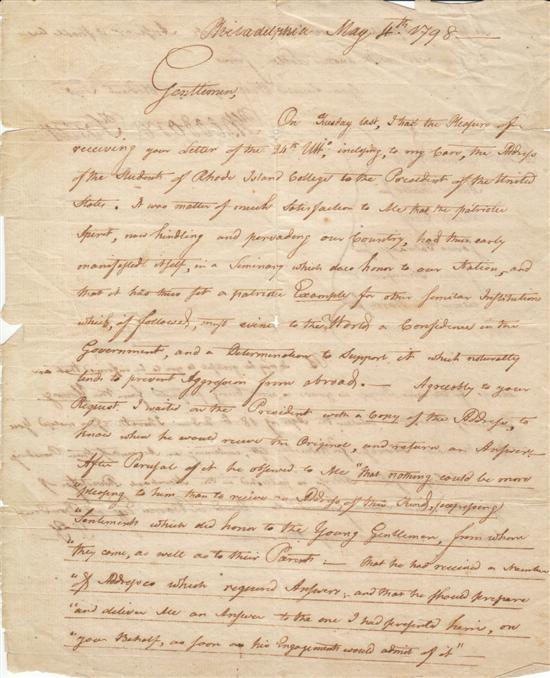 Philadelphia May 4th. 1798
Gentlemen,
On Tuesday last, I had the Pleasure of
receiving your Letter of the 24th Ulto, inclosing, to my Care, the Address
of the Students of Rhode Island College to the President of the United
States. It was matter of much Satisfaction to Me that the patriotic
Spirit, now kindling and pervading our Country, had thus early
manifested itself, in a Seminary which does honor to our Nation, and
that it had thus set a patriotic Example for other similar Institutions
which, if followed, must evince to the World a Confidence in the
Government, and a Determination to support it which naturally
tends to prevent Aggression from abroad. — Agreeably to your
Request, I waited on the President with a Copy of the Address, to
know when he would receive the Original, and return an Answer.
After Perusal of it he observed to Me "that nothing could be more
pleasing to him than to receive an Address of this Kind, expressing
"Sentiments which did honor to the Young Gentlemen, from whom
"they came, as well as to their Parents — that he had received a Number
"of Addresses which required Answers, and that he should prepare
"and deliver Me an Answer to the one I had presented him, on
"your Behalf, as soon as his Engagements would admit of it"